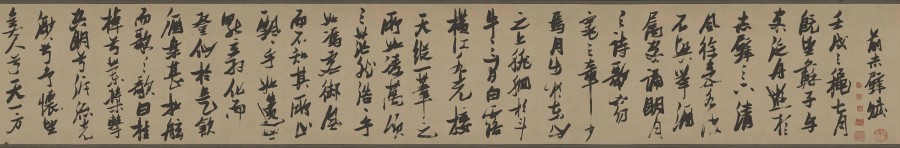 前赤壁賦
壬戌之秋七月
既望蘇子與
客泛舟遊於
赤壁之下清
風徐來水波
不興舉酒
屬客誦明月
之詩歌窈
窕之章少
焉月出於東山
之上徘徊於斗
牛之間白露
橫江水光接
天縱一葦之
所如凌萬頃
之茫然浩乎
如馮虛御風
而不知其所止
飄飄乎如遺世
獨立羽化而
登仙於是飲
酒樂甚扣舷
而歌之歌曰桂
棹兮蘭槳擊
空明兮泝流光
渺兮予懷望
美人兮天一方